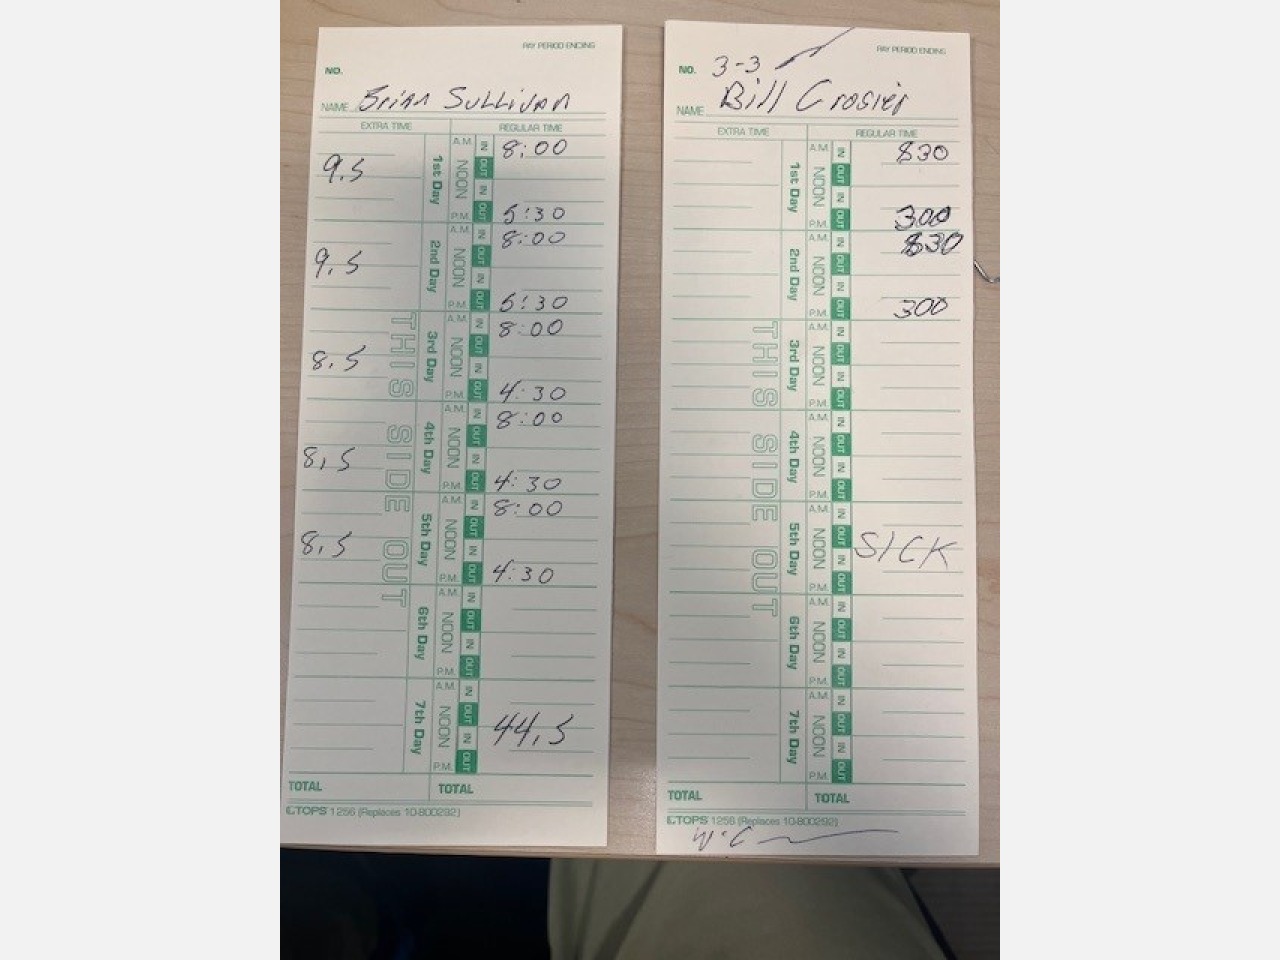 PAY PERIOD ENDING
NO.
NAME Brian Sullivan
EXTRA TIME REGULAR TIME
1st Day
A.M. IN 8:00
9.5 NOON OUT
IN
P.M. OUT 5:30
2nd Day
A.M. IN 8:00
9.5 NOON OUT
IN
P.M. OUT 5:30
3rd Day
A.M. IN 8:00
8.5 NOON OUT
IN
P.M. OUT 4:30
4th Day
A.M. IN 8:00
8.5 NOON OUT
IN
P.M. OUT 4:30
5th Day
A.M. IN 8:00
8.5 NOON OUT
IN
P.M. OUT 4:30
6th Day
A.M. IN
NOON OUT
IN
P.M. OUT
7th Day
A.M. IN
NOON OUT
IN 44.5
P.M. OUT
THIS SIDE OUT
TOTAL TOTAL
TOPS 1256 (Replaces 10-800292)
PAY PERIOD ENDING
NO. 3-3
NAME Bill Crosier
EXTRA TIME REGULAR TIME
1st Day
A.M. IN 830
NOON OUT
IN
P.M. OUT 300
2nd Day
A.M. IN 830
NOON OUT
IN
P.M. OUT 300
3rd Day
A.M. IN
NOON OUT
IN
P.M. OUT
4th Day
A.M. IN
NOON OUT
IN
P.M. OUT
5th Day
A.M. IN
NOON OUT
IN SICK
P.M. OUT
6th Day
A.M. IN
NOON OUT
IN
P.M. OUT
7th Day
A.M. IN
NOON OUT
IN
P.M. OUT
THIS SIDE OUT
TOTAL TOTAL
TOPS 1256 (Replaces 10-800292)